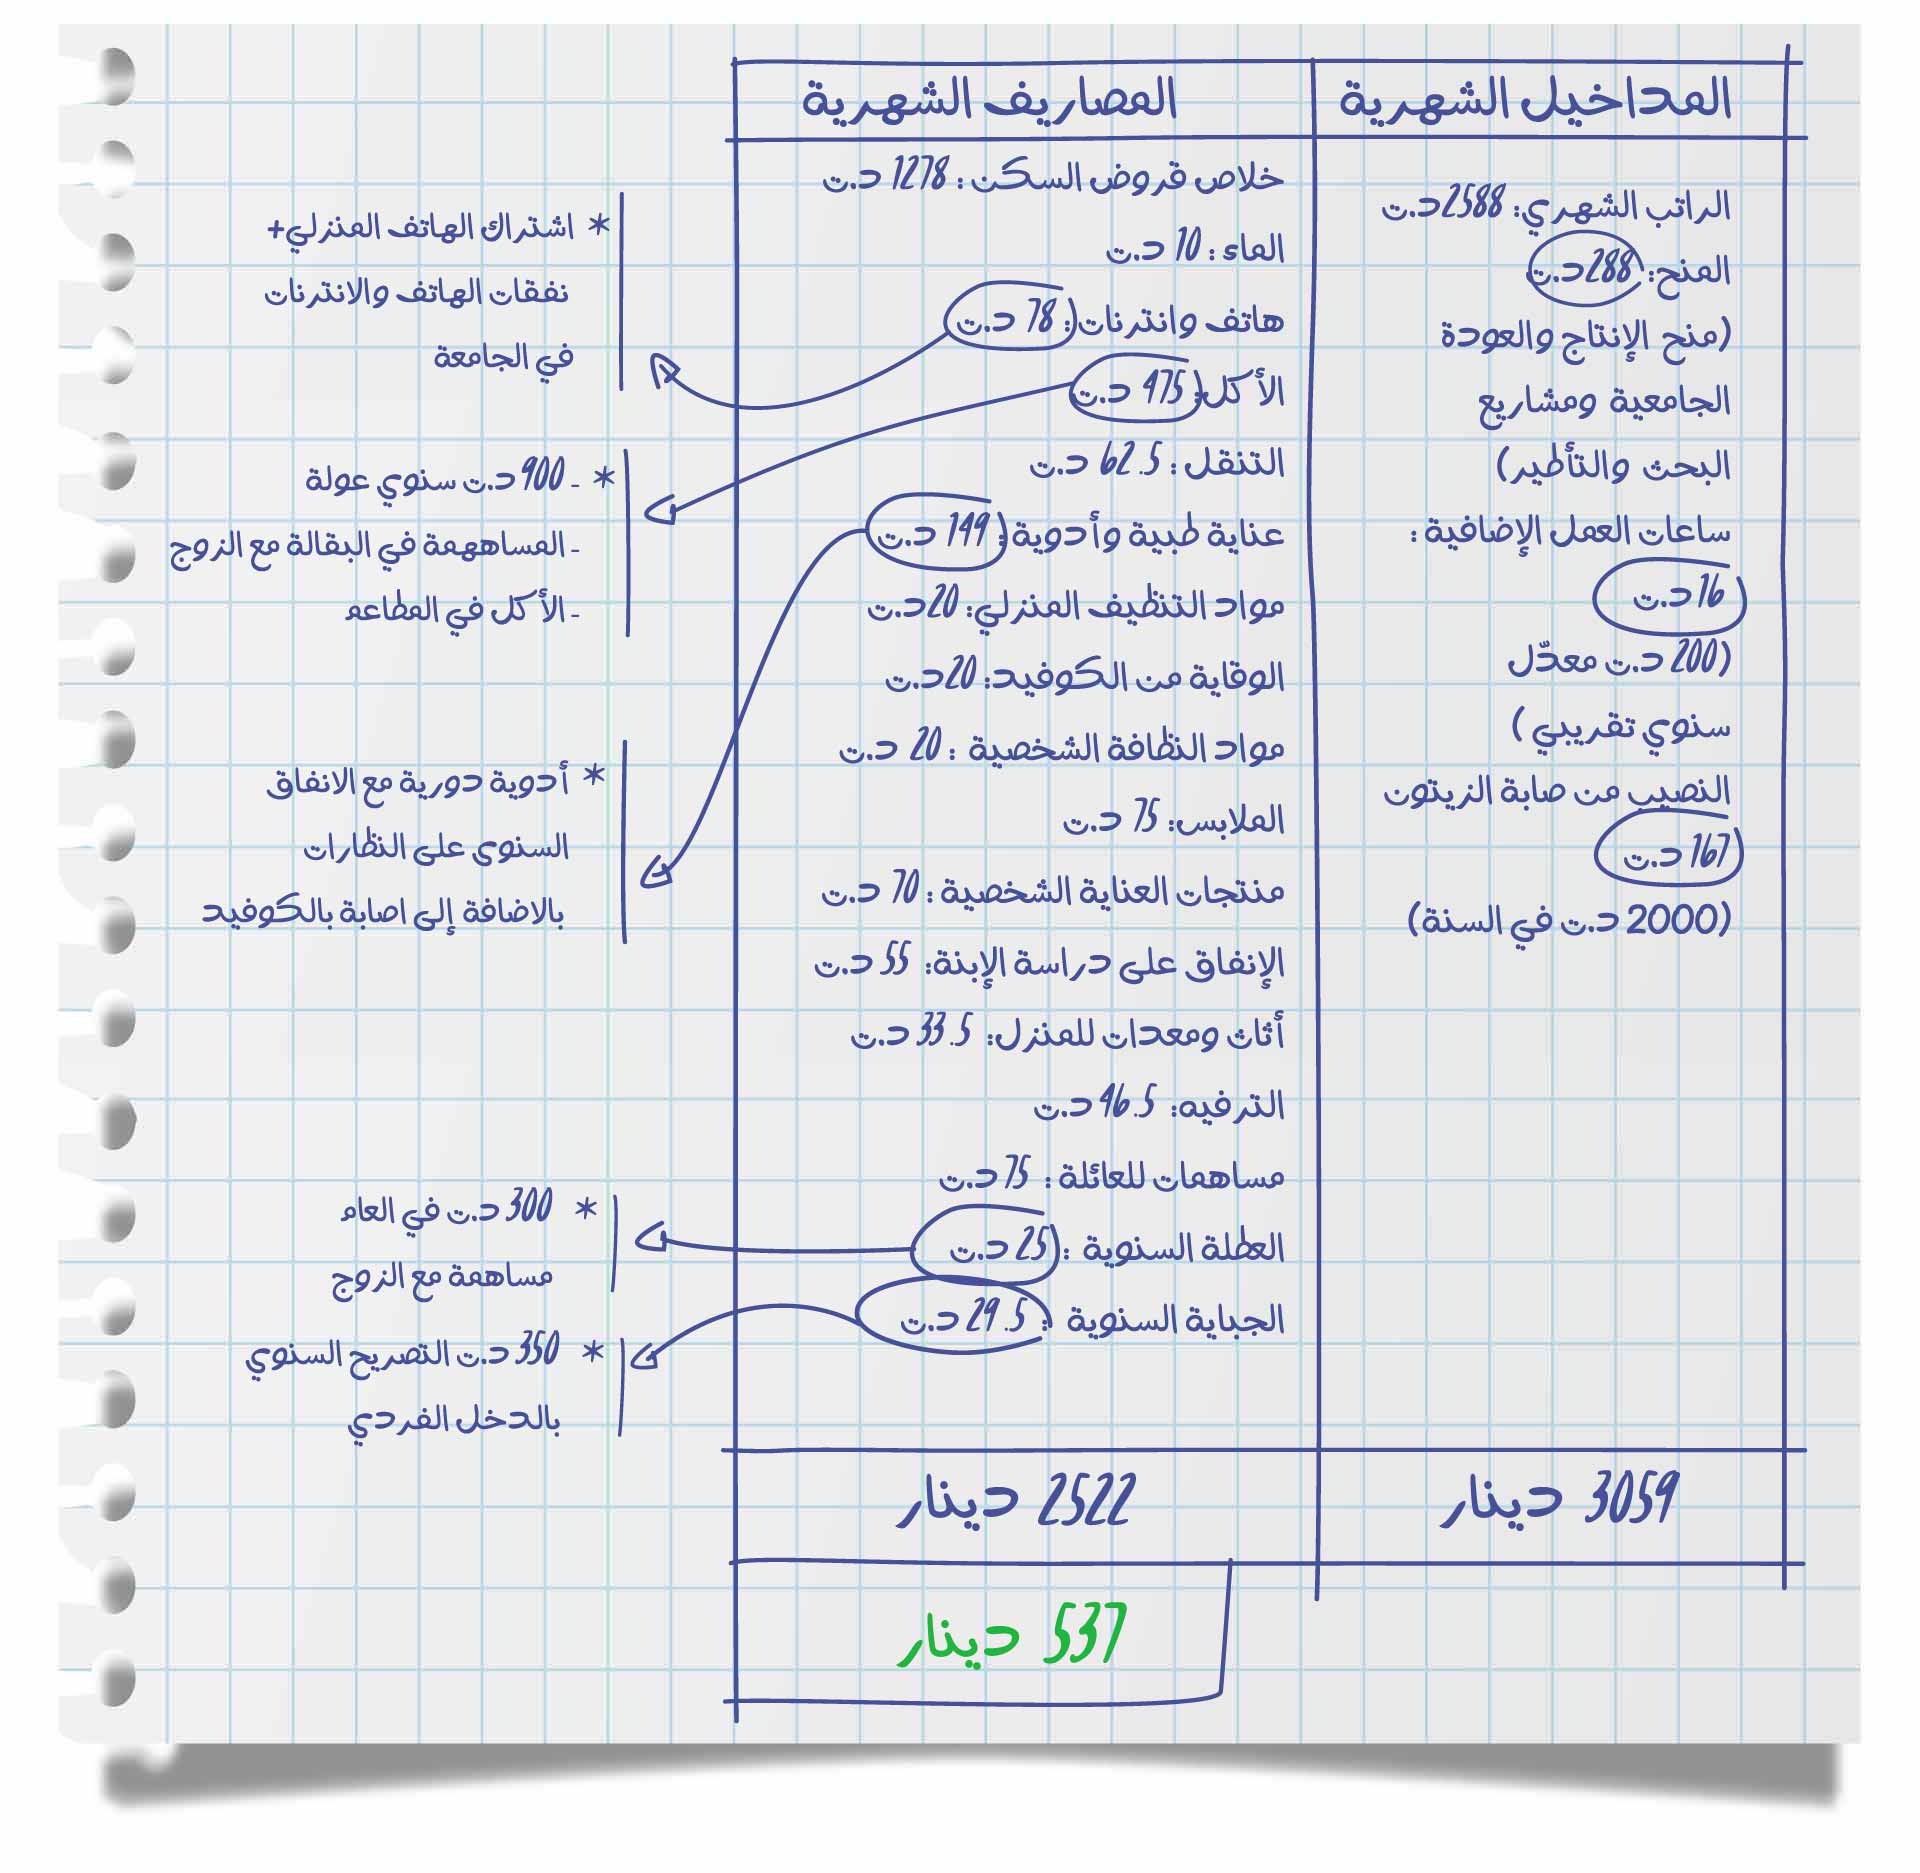 المداخيل الشهرية
الراتب الشهري: 2588د.ت
المنح: 288د.ت
(منح الإنتاج والعودة
الجامعية ومشاريع
البحث والتأطير)
ساعات العمل الإضافية:
16د.ت
(200 د.ت معدّل
سنوي تقريبي)
النصيب من صابة الزيتون
167 د.ت
(2000 د.ت في السنة)
3059 دينار
المصاريف الشهرية
خلاص قروض السكن: 1278 د.ت
الماء: 10 د.ت
هاتف وانترنات: 78 د.ت
الأكل: 475 د.ت
التنقل: 62.5 د.ت
عناية طبية وأدوية: 149 د.ت
مواد التنظيف المنزلي: 20د.ت
الوقاية من الكوفيد: 20د.ت
مواد النظافة الشخصية: 20 د.ت
الملابس: 75 د.ت
منتجات العناية الشخصية: 70 د.ت
الإنفاق على دراسة الإبنة: 55 د.ت
أثاث ومعدات للمنزل: 33.5 د.ت
الترفيه: 46.5 د.ت
مساهمات للعائلة: 75 د.ت
العطلة السنوية: 25 د.ت
الجباية السنوية: 29.5 د.ت
2522 دينار
537 دينار
* اشتراك الهاتف المنزلي+
نفقات الهاتف والانترنات
في الجامعة
* - 900 د.ت سنوي عولة
- المساههمة في البقالة مع الزوج
- الأكل في المطاعم
* أدوية دورية مع الانفاق
السنوي على النظارات
بالاضافة إلى اصابة بالكوفيد
* 300 د.ت في العام
مساهمة مع الزوج
* 350 د.ت التصريح السنوي
بالدخل الفردي